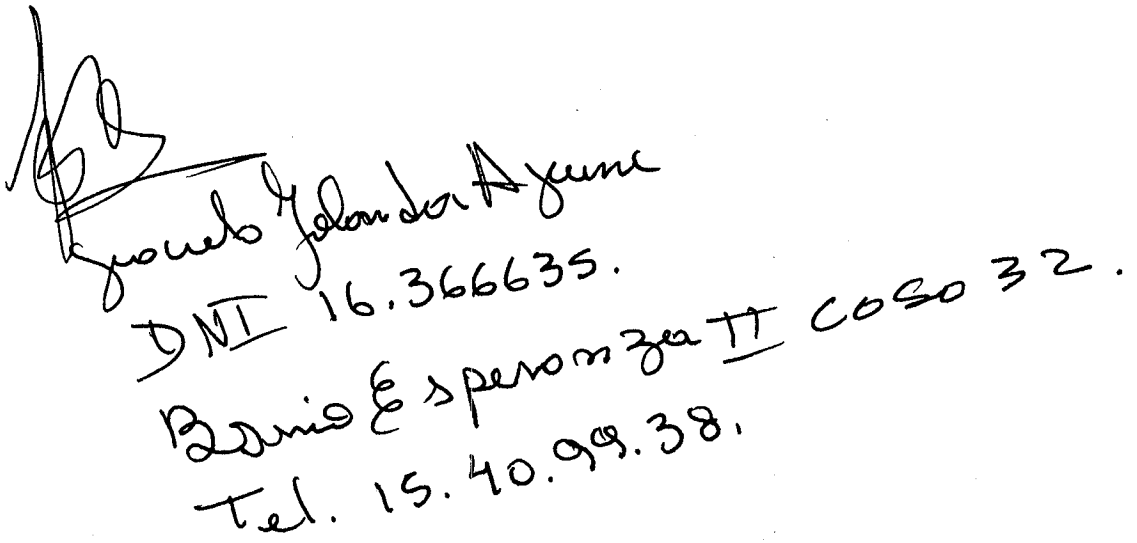 Graciela Yolanda Ayume
DNI 16.366635.
Barrio Esperanza II casa 32.
Tel. 15.40.99.38.